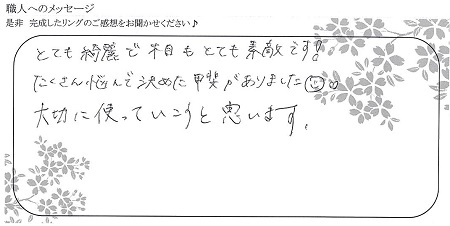 職人へのメッセージ
是非 完成したリングのご感想をお聞かせください♪
とても綺麗で木目もとても素敵です!
たくさん悩んで決めた甲斐がありました☺。
大切に使っていこうと思います。